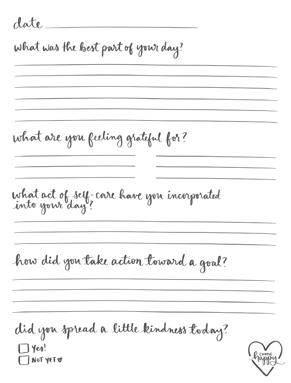 date
what was the best part of your day?
what are you feeling grateful for?
what act of self-care have you incorporated
into your day?
how did you take action toward a goal?
did you spread a little kindness today?
Yes!
NOT YET
choose
happy